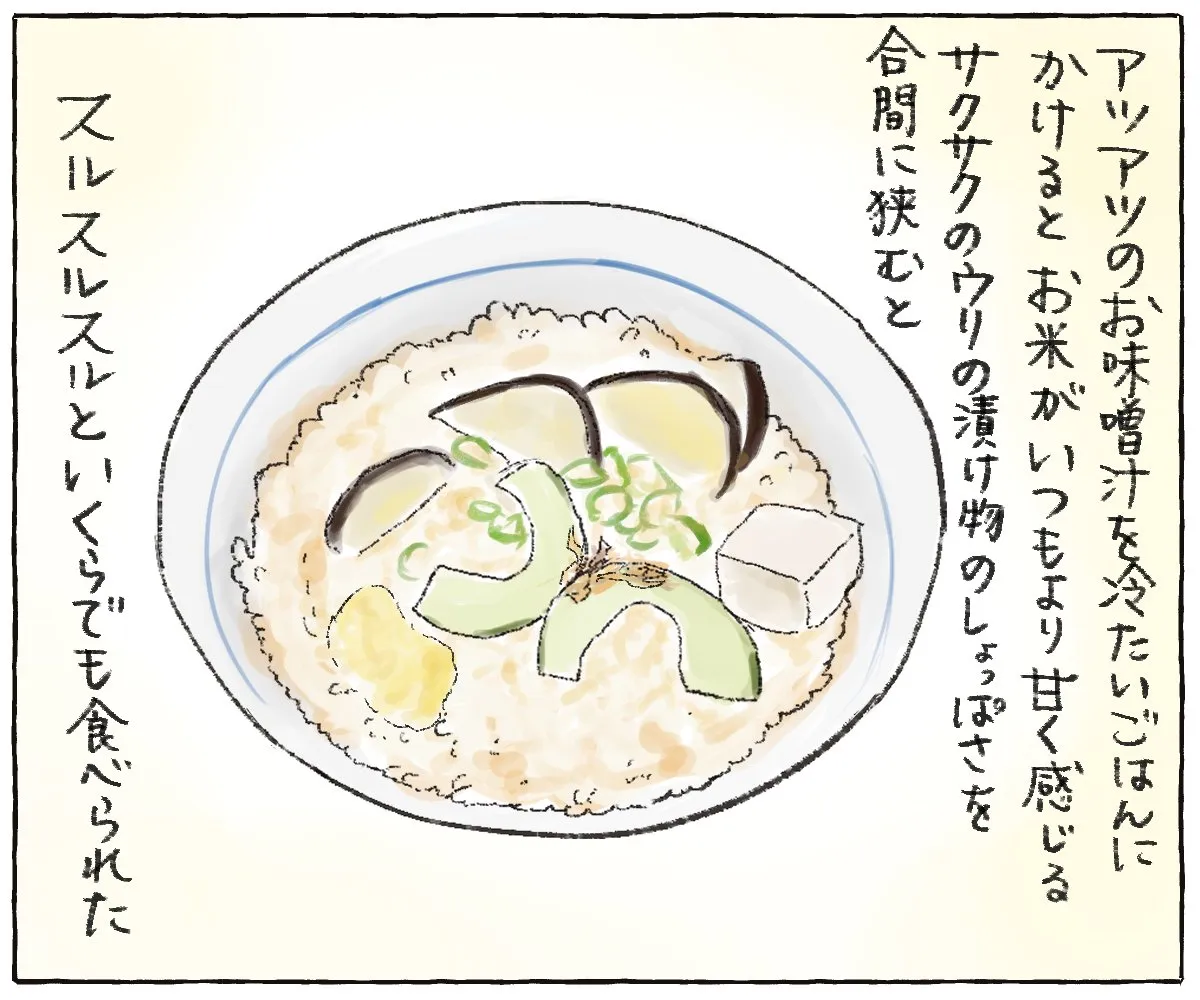 アツアツのお味噌汁を冷たいごはんに
かけるとお米がいつもより甘く感じる
サクサクのウリの漬け物のしょっぱさを
合間に狭むと
スルスルスルといくらでも食べられた